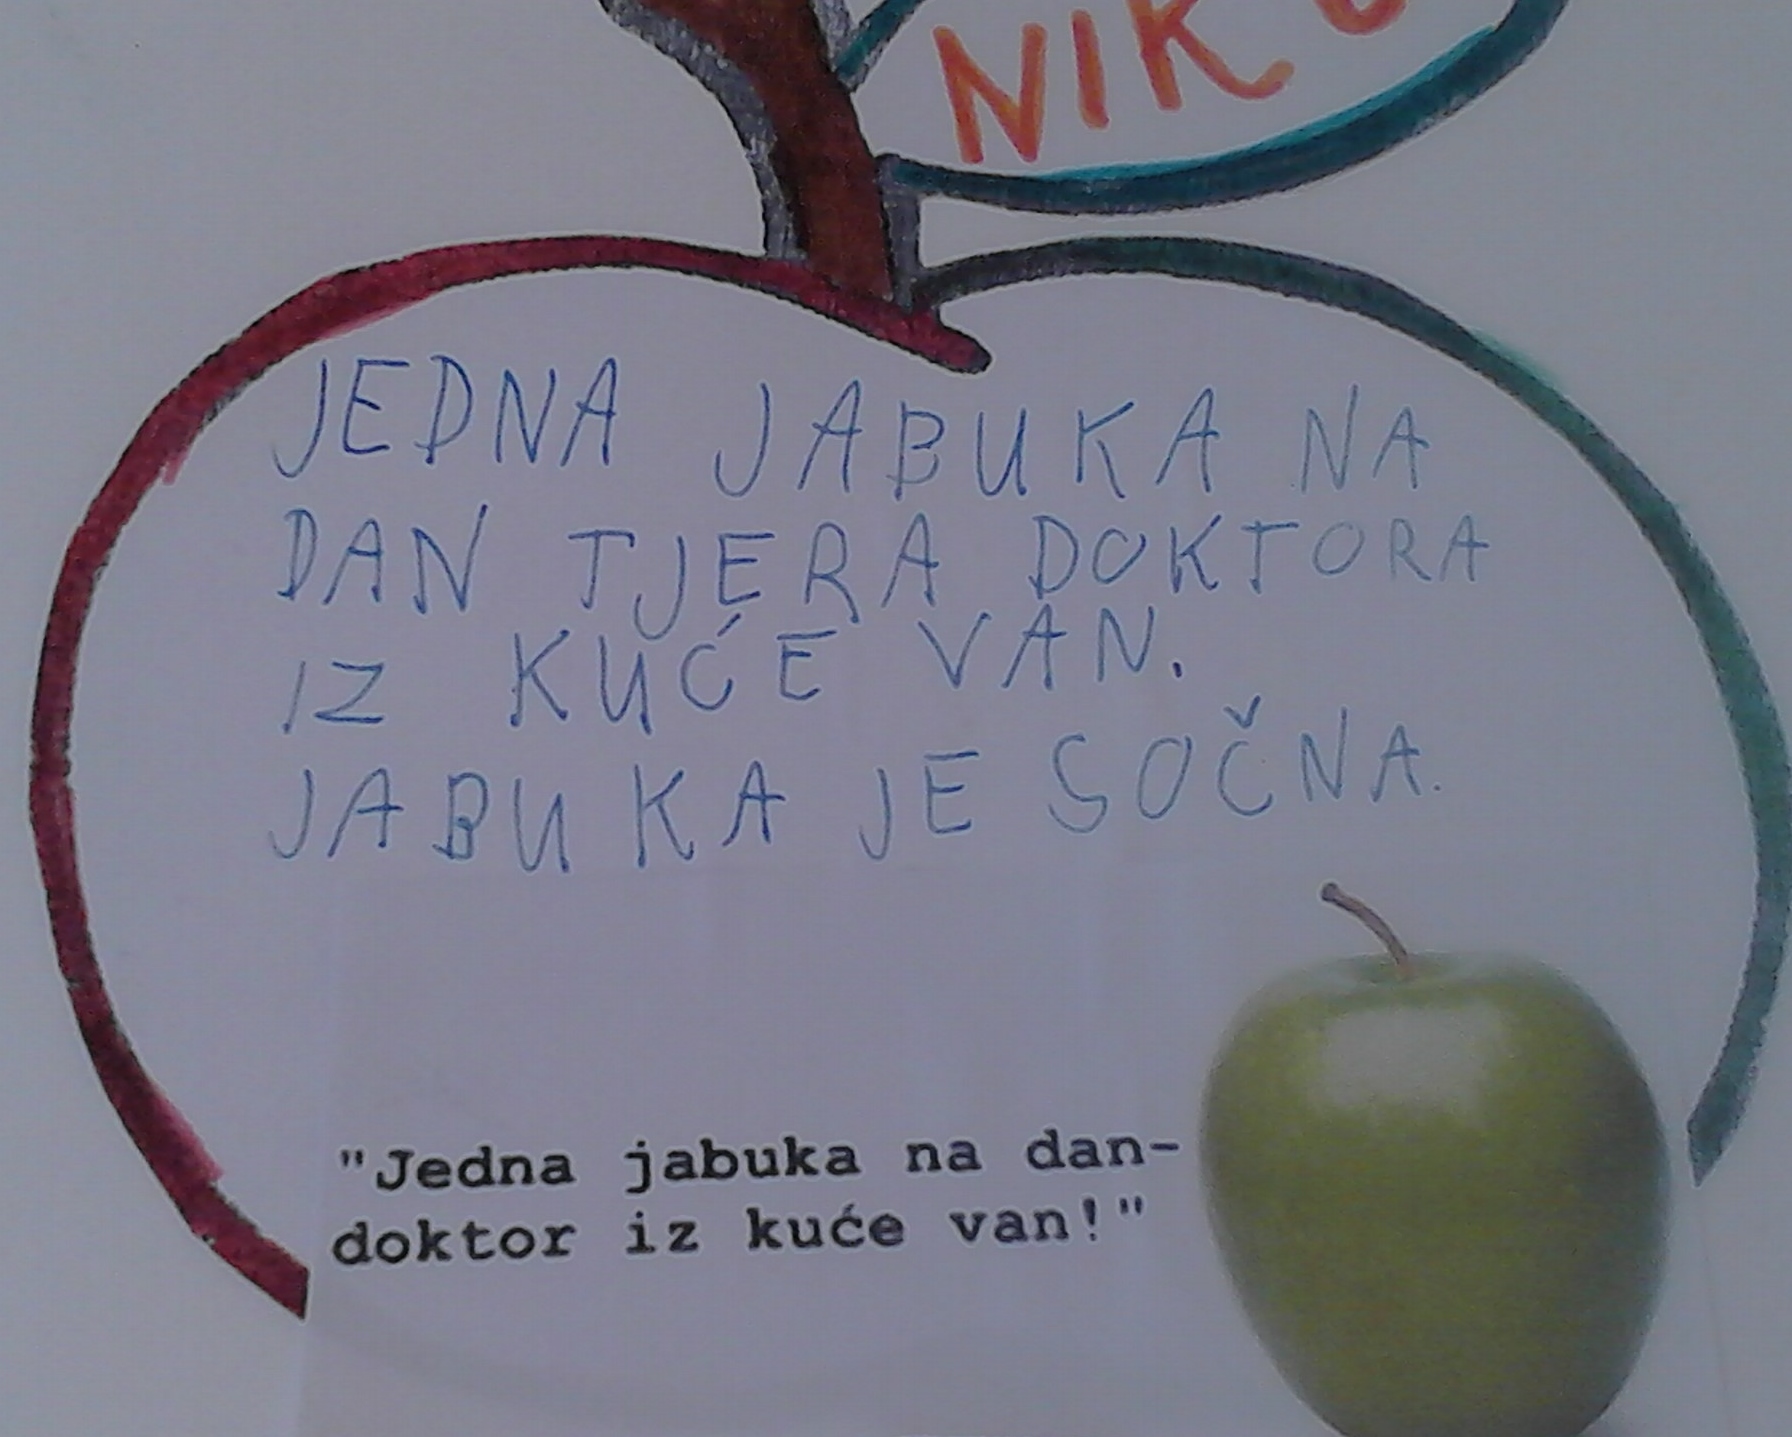 JEDNA JABUKA NA
DAN TJERA DOKTORA
IZ KUĆE VAN.
JABUKA JE SOČNA.
"Jedna jabuka na dan-
doktor iz kuće van!"